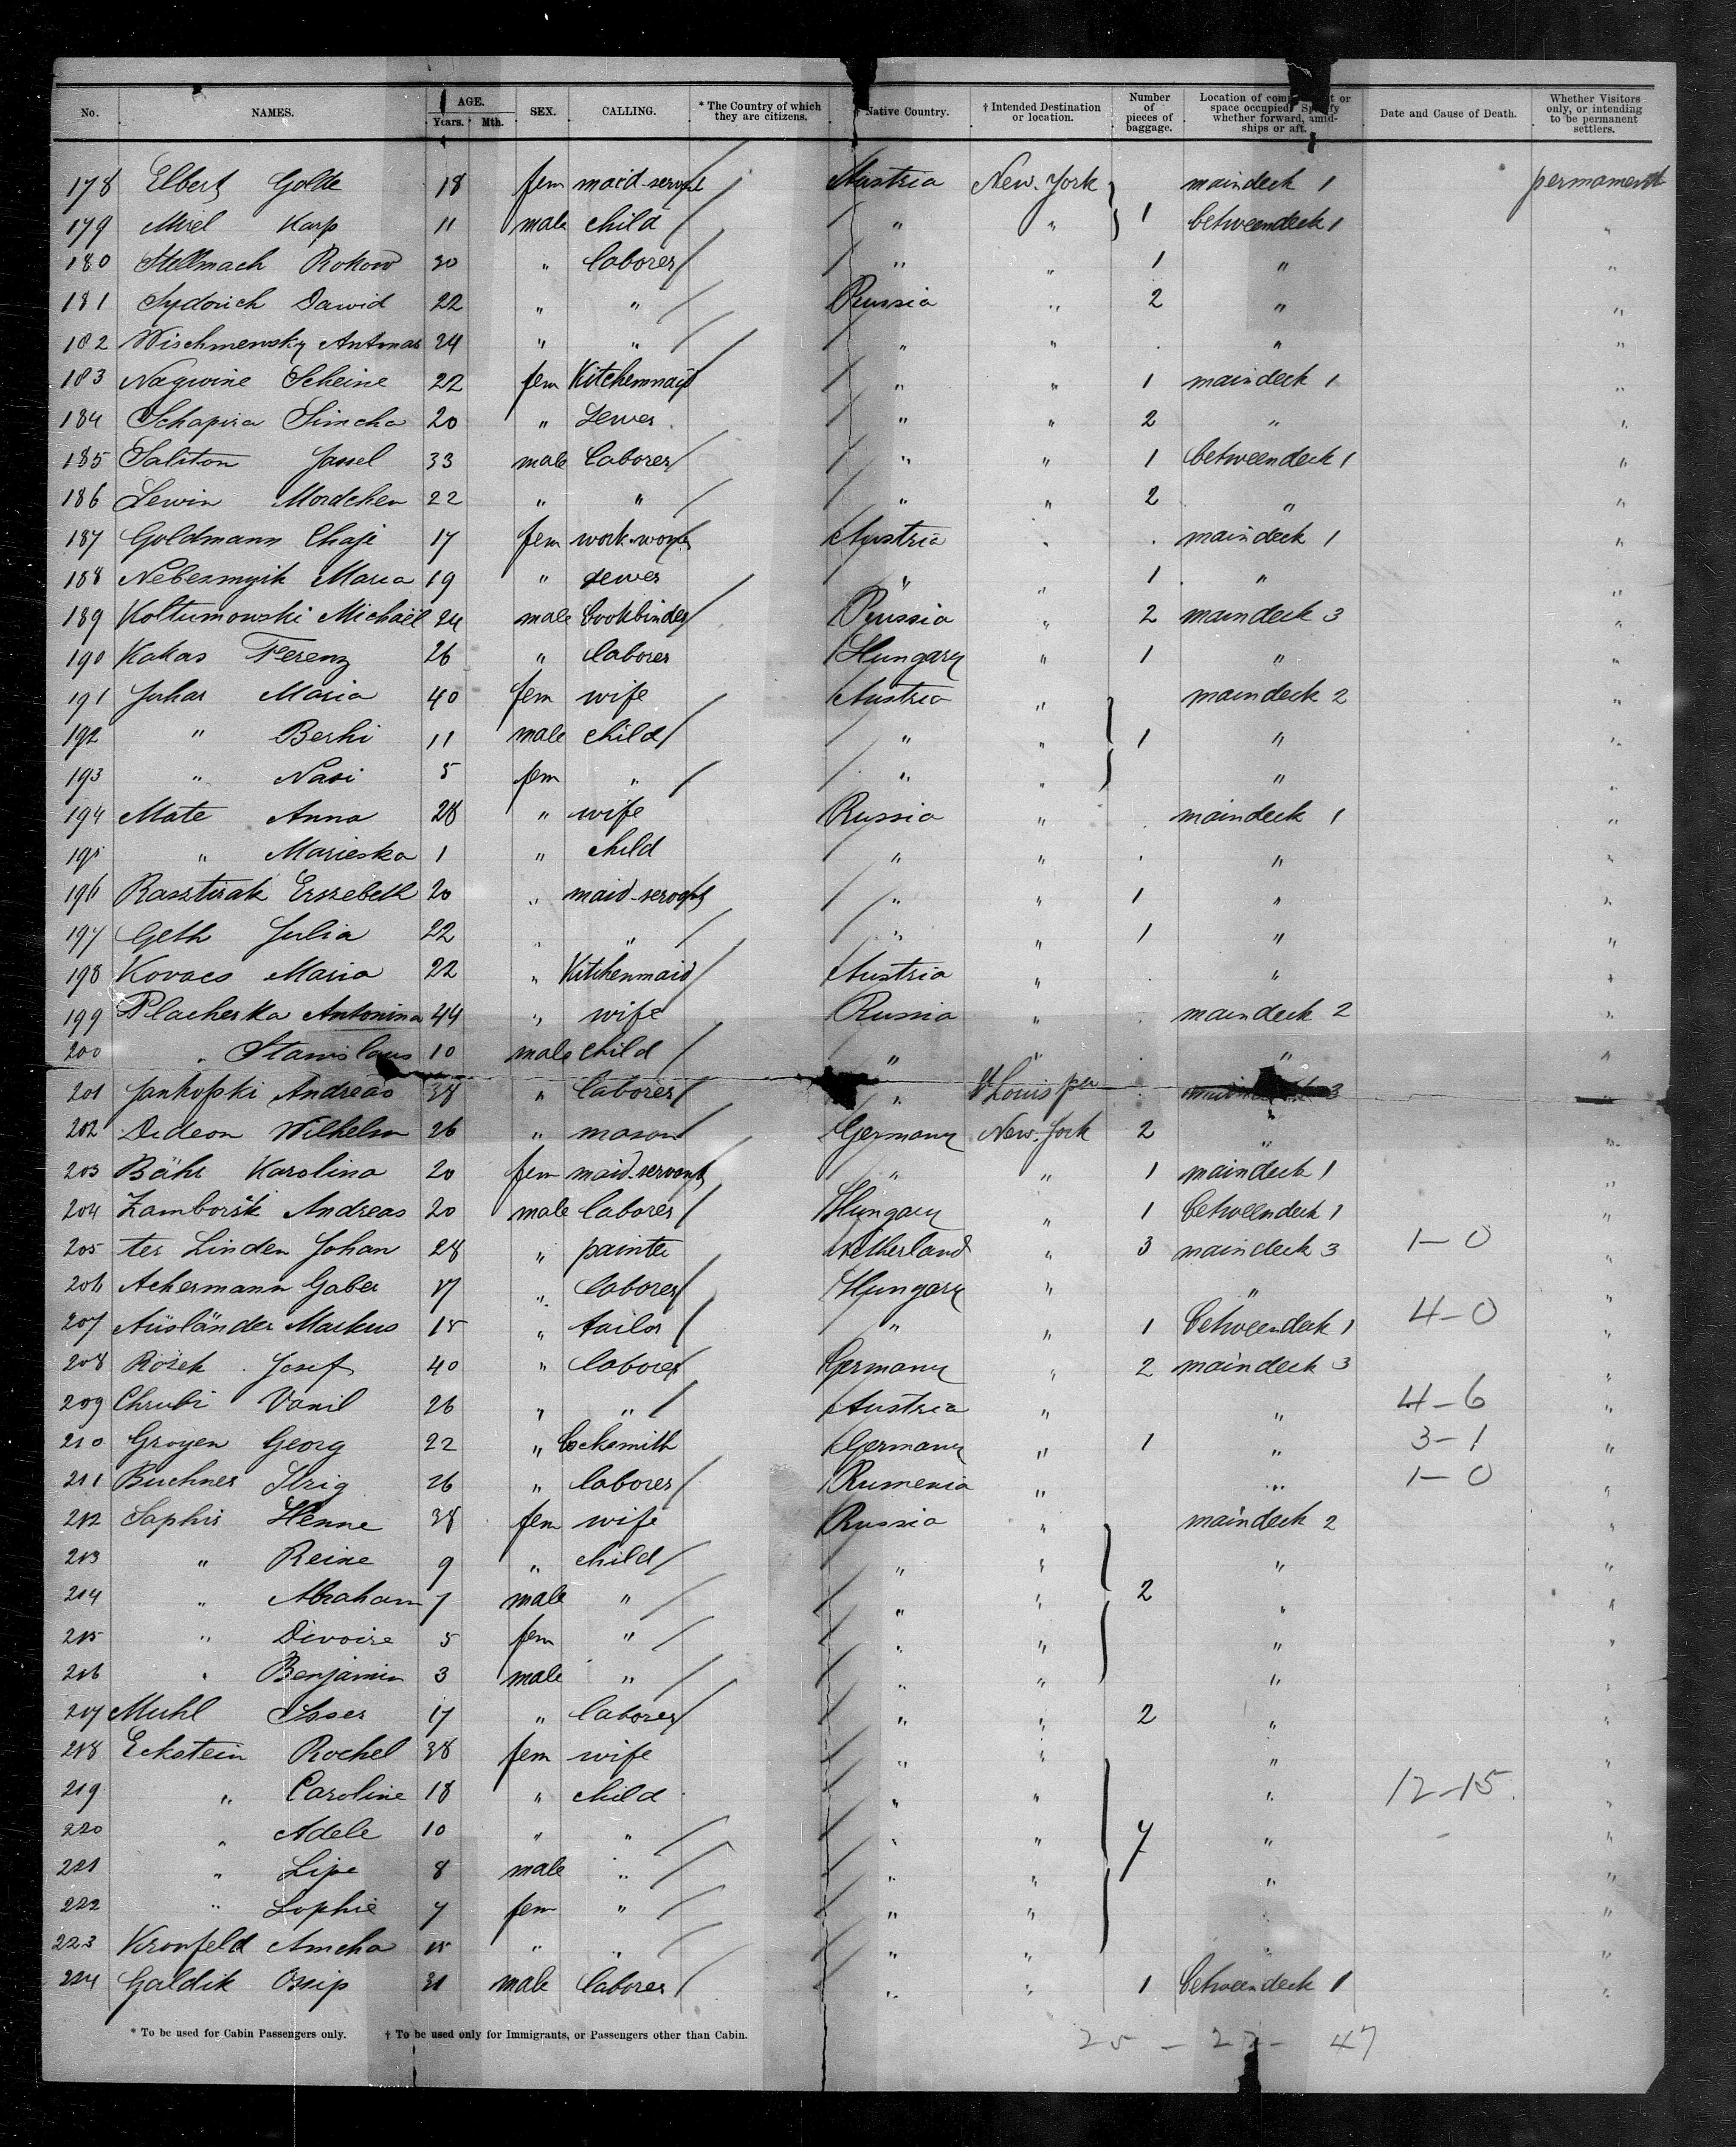 No. NAMES. AGE. Years. Mth. SEX. CALLING. * The Country of which they are citizens. Native Country. † Intended Destination or location. Number of pieces of baggage. Location of or space occupied. whether forward, amid-ships or aft. Date and Cause of Death. Whether Visitors only, or intending to be permanent settlers.
178 Elbert Golde 18 fem maid-servant Austria New-York maindeck 1 permament
179 Mirel Karp 11 male child " " 1 betweendeck 1 "
180 Stellmach Rokow 30 " laborer " " 1 " "
181 Sydorich Dawid 22 " " Russia " 2 " "
182 Wischmewsky Antonas 24 " " " " " "
183 Nagwine Scheine 22 fem Kitchenmaid " " 1 maindeck 1 "
184 Schapira Simcha 20 " Sewer " " 2 " "
185 Saliton Jassel 33 male laborer " " 1 betweendeck 1 "
186 Lewin Mordchen 22 " " " " 2 " "
187 Goldmann Chaje 17 fem Austria maindeck 1 "
188 Maria 19 " sewer " " 1 " "
189 Koltumowski Michaël 24 male bookbinder Russia " 2 maindeck 3 "
190 Kakas Ferenz 26 " laborer Hungary " 1 " "
191 Juhas Maria 40 fem wife Austria " maindeck 2 "
192 " Berhi 11 male child " " 1 " "
193 " Nasi 5 fem " " " " "
194 Mate Anna 28 " wife Russia " maindeck 1 "
195 " Marieska 1 " child " " " "
196 Rasztirak Erszebeth 20 " maid-servant " " 1 " "
197 Geth Julia 22 " " " " 1 " "
198 Kovacs Maria 22 " Kitchenmaid Austria " " "
199 Placherka Antonina 44 " wife Russia " maindeck 2 "
200 " Stanislaus 10 male child " " " "
201 Jankofski Andreas 38 " laborer " St Louis 3
202 Dideon Wilhelm 26 " mason Germany New-York 2 " "
203 Bähr Karolina 20 fem maid-servant " " 1 maindeck 1 "
204 Zamborsk Andreas 20 male laborer Hungary " 1 betweendeck 1 "
205 ter Linden Johan 28 " painte Netherland " 3 maindeck 3 1-0 "
206 Ackermann Gabor 17 " laborer Hungary " " "
207 Ausländer Markus 15 " tailor " " 1 betweendeck 1 4-0 "
208 Rosek Josef 40 " laborer Germany " 2 maindeck 3 "
209 Chrubi Vanil 26 " " Austria " " 4-6 "
210 Groyen Georg 22 " locksmith Germany " 1 " 3-1 "
211 Buchner 26 " laborer Rumenia " " 1-0 "
212 Saphir Henne 38 fem wife Russia " maindeck 2 "
213 " Reine 9 " child " " " "
214 " Abraham 7 male " " " 2 " "
215 " Divoire 5 fem " " " " "
216 " Benjamin 3 male " " " " "
217 Muhl Isser 17 " laborer " " 2 " "
218 Eckstein Rochel 38 fem wife " " " "
219 " Caroline 18 " child " " " 12-15 "
220 " Adele 10 " " " " 7 " "
221 " Lipe 8 male " " " " "
222 " Sophie 7 fem " " " "
223 Kronfeld Amcha 15 " " " " " "
224 Galdik Ossip 31 male laborer " " 1 betweendeck 1 "
* To be used for Cabin Passengers only. † To be used only for Immigrants, or Passengers other than Cabin.
25 - 22 - 47